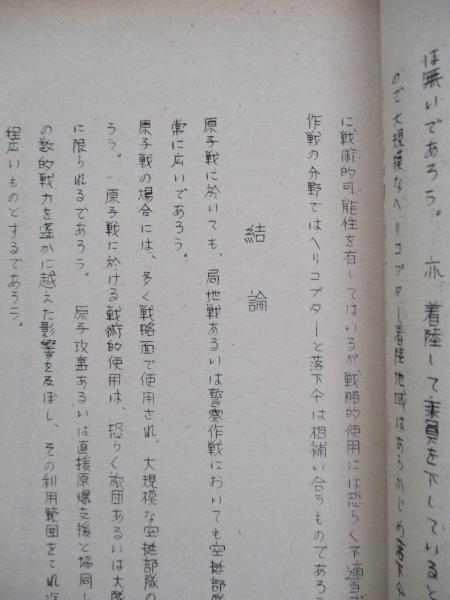 は無いであろう。 亦、着陸して乗員を下していると
ので大規模なヘリコプター着陸地域はあらかじめ
に戦術的可能性を有してはいるが戦略的使用には恐らく不適当で
作戦の分野ではヘリコプターと落下傘は相補い合うものであろ
結論
原子戦に於いても、局地戦あるいは警察作戦においても空挺部隊
常に広いであろう。
原子戦の場合には、多く戦略面で使用され、大規模な空挺部隊の
ろう。 原子戦に於ける戦術的使用は、恐らく旅団あるいは大隊
に限られるであろう。 原子攻撃あるいは直接原爆支援と協同し
の数的戦力を遙かに越えた影響を及ぼし、その利用範囲をこれ迄
程広いものとするであろう。